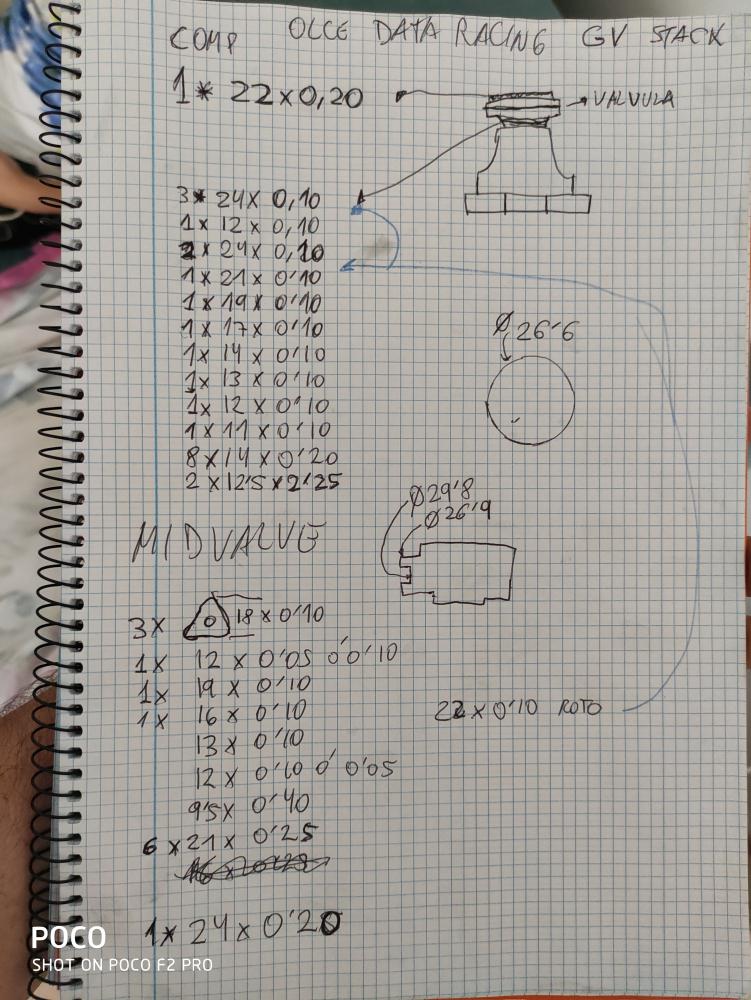 COMP OLCE DATA RACING GV STACK
1* 22x0,20
VALVULA
3* 24x 0,10
1x 12x 0,10
2x 24x 0,10
1x 21x 0'10
1x 19x 0'10
1x 17x 0'10
1x 14x 0'10
1x 13x 0'10
1x 12x 0'10
1x 11x 0'10
8x14x0'20
2x12'5x2'25
Ø26'6
Ø29'8
Ø26'9
MIDVALVE
3x 18x0'10
1x 12x0'05 ó 0'10
1x 19x 0'10
1x 16x 0'10
13x 0'10
12x 0'10 ó 0'05
9'5x 0'40
6x21x 0'25
22x0'10 ROTO
1* 24x0'20
POCO
SHOT ON POCO F2 PRO